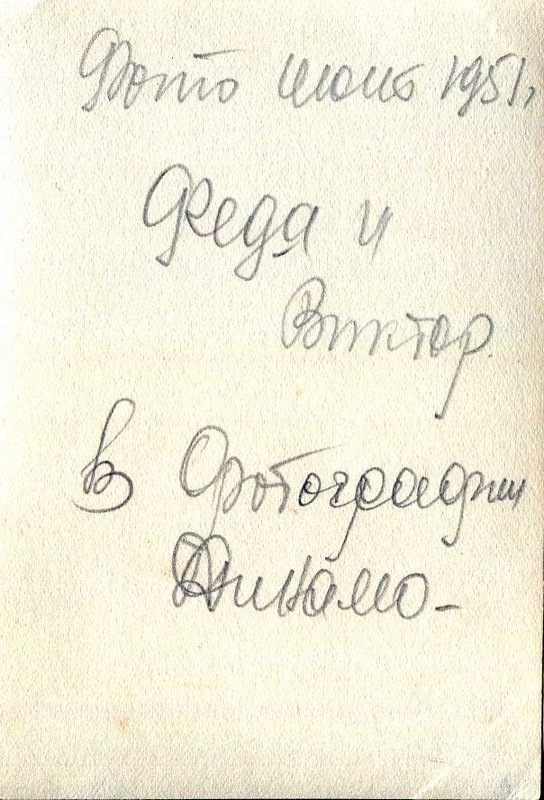 Фото 1951,
Федя и
Виктор.
В Фотографии
Динамо -